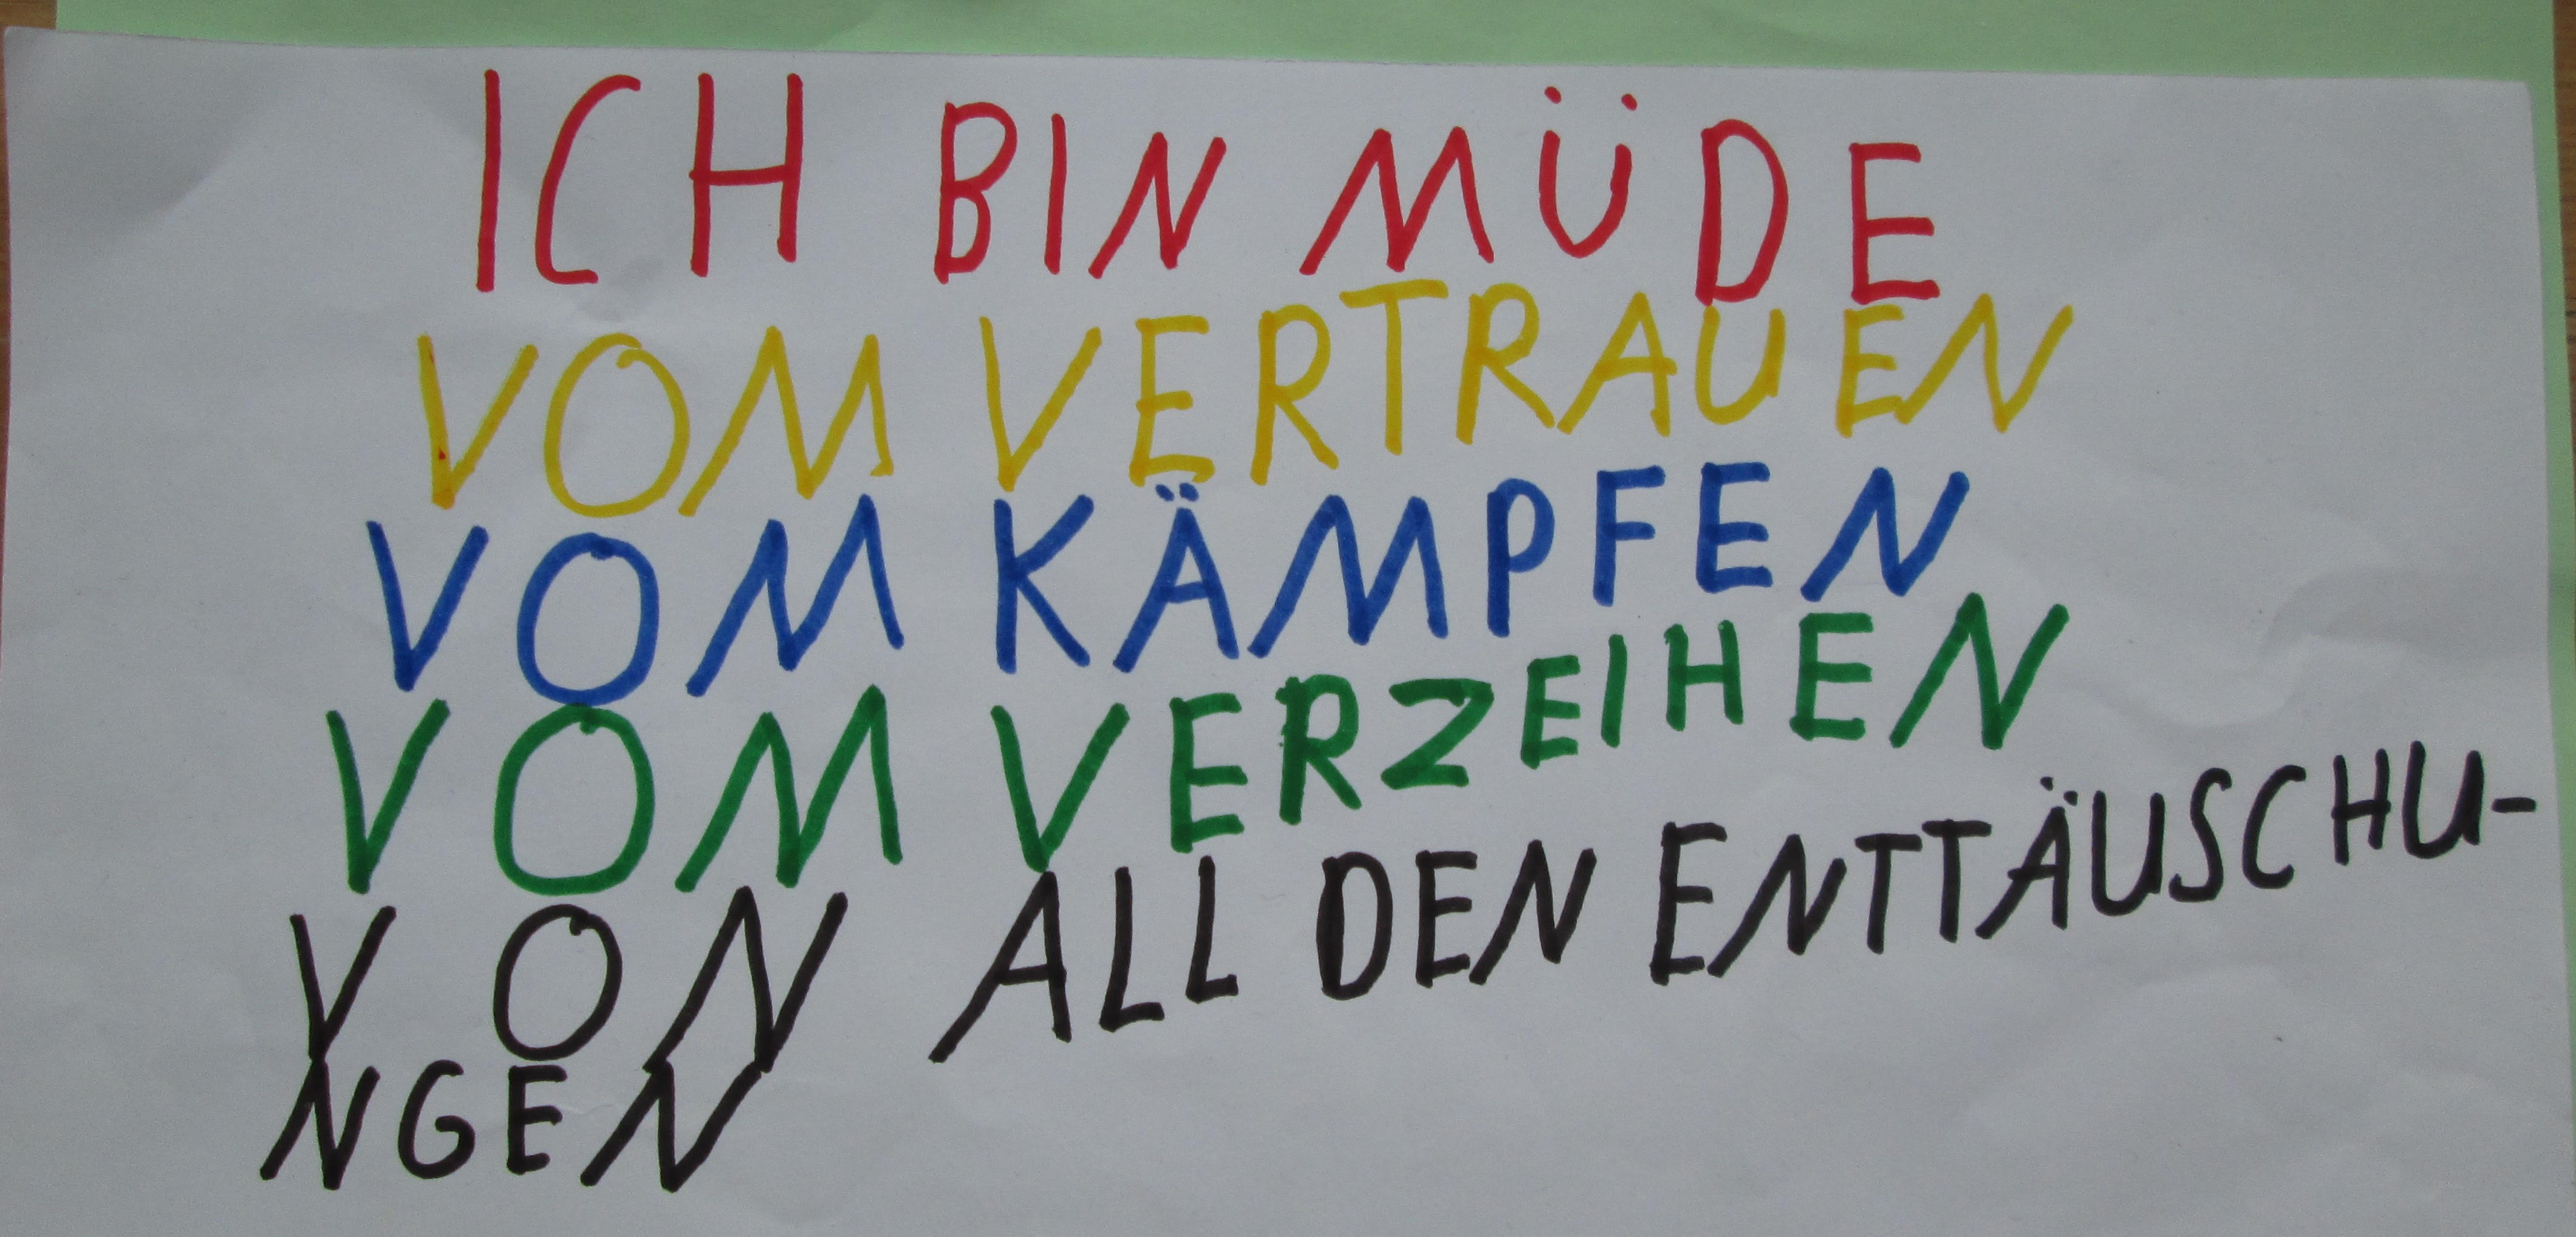 ICH BIN MÜDE
VOM VERTRAUEN
VOM KÄMPFEN
VOM VERZEIHEN
VON ALL DEN ENTTÄUSCHU-
NGEN